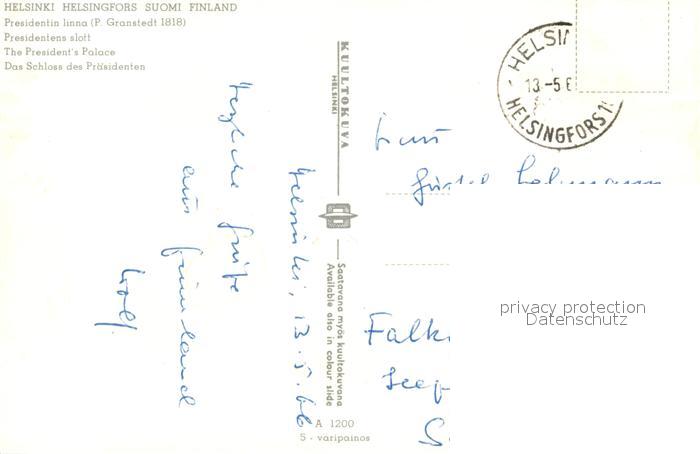 HELSINKI HELSINGFORS SUOMI FINLAND
Presidentin linna (P. Granstedt 1818)
Presidentens slott
The President's Palace
Das Schloss des Präsidenten
HELSIN
13.-5.6
HELSINGFORS 1
KUULTOKUVA
HELSINKI
Saatavana myös kuultokuvana
Available also in colour slide
A 1200
5 - väripainos
Helsinki, 13.5.66
Herzliche Grüße
aus Finnland
Wolf.
Frau
Falk
privacy protection
Datenschutz